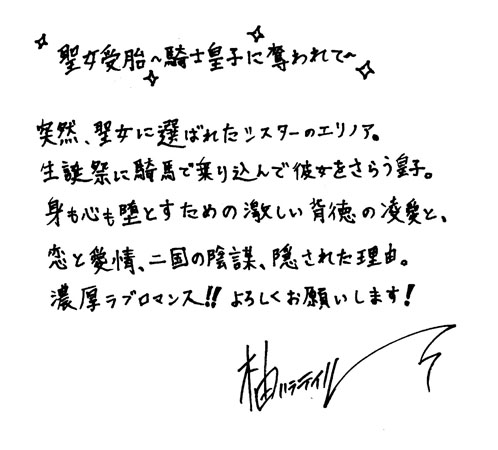 聖女受胎~騎士皇子に奪われて~
突然、聖女に選ばれたシスターのエリノア。
生誕祭に騎馬で乗り込んで彼女をさらう皇子。
身も心も堕とすための激しい背徳の凌愛と、
恋と愛情、二国の陰謀、隠された理由。
濃厚ラブロマンス!! よろしくお願いします!
柚原テイル